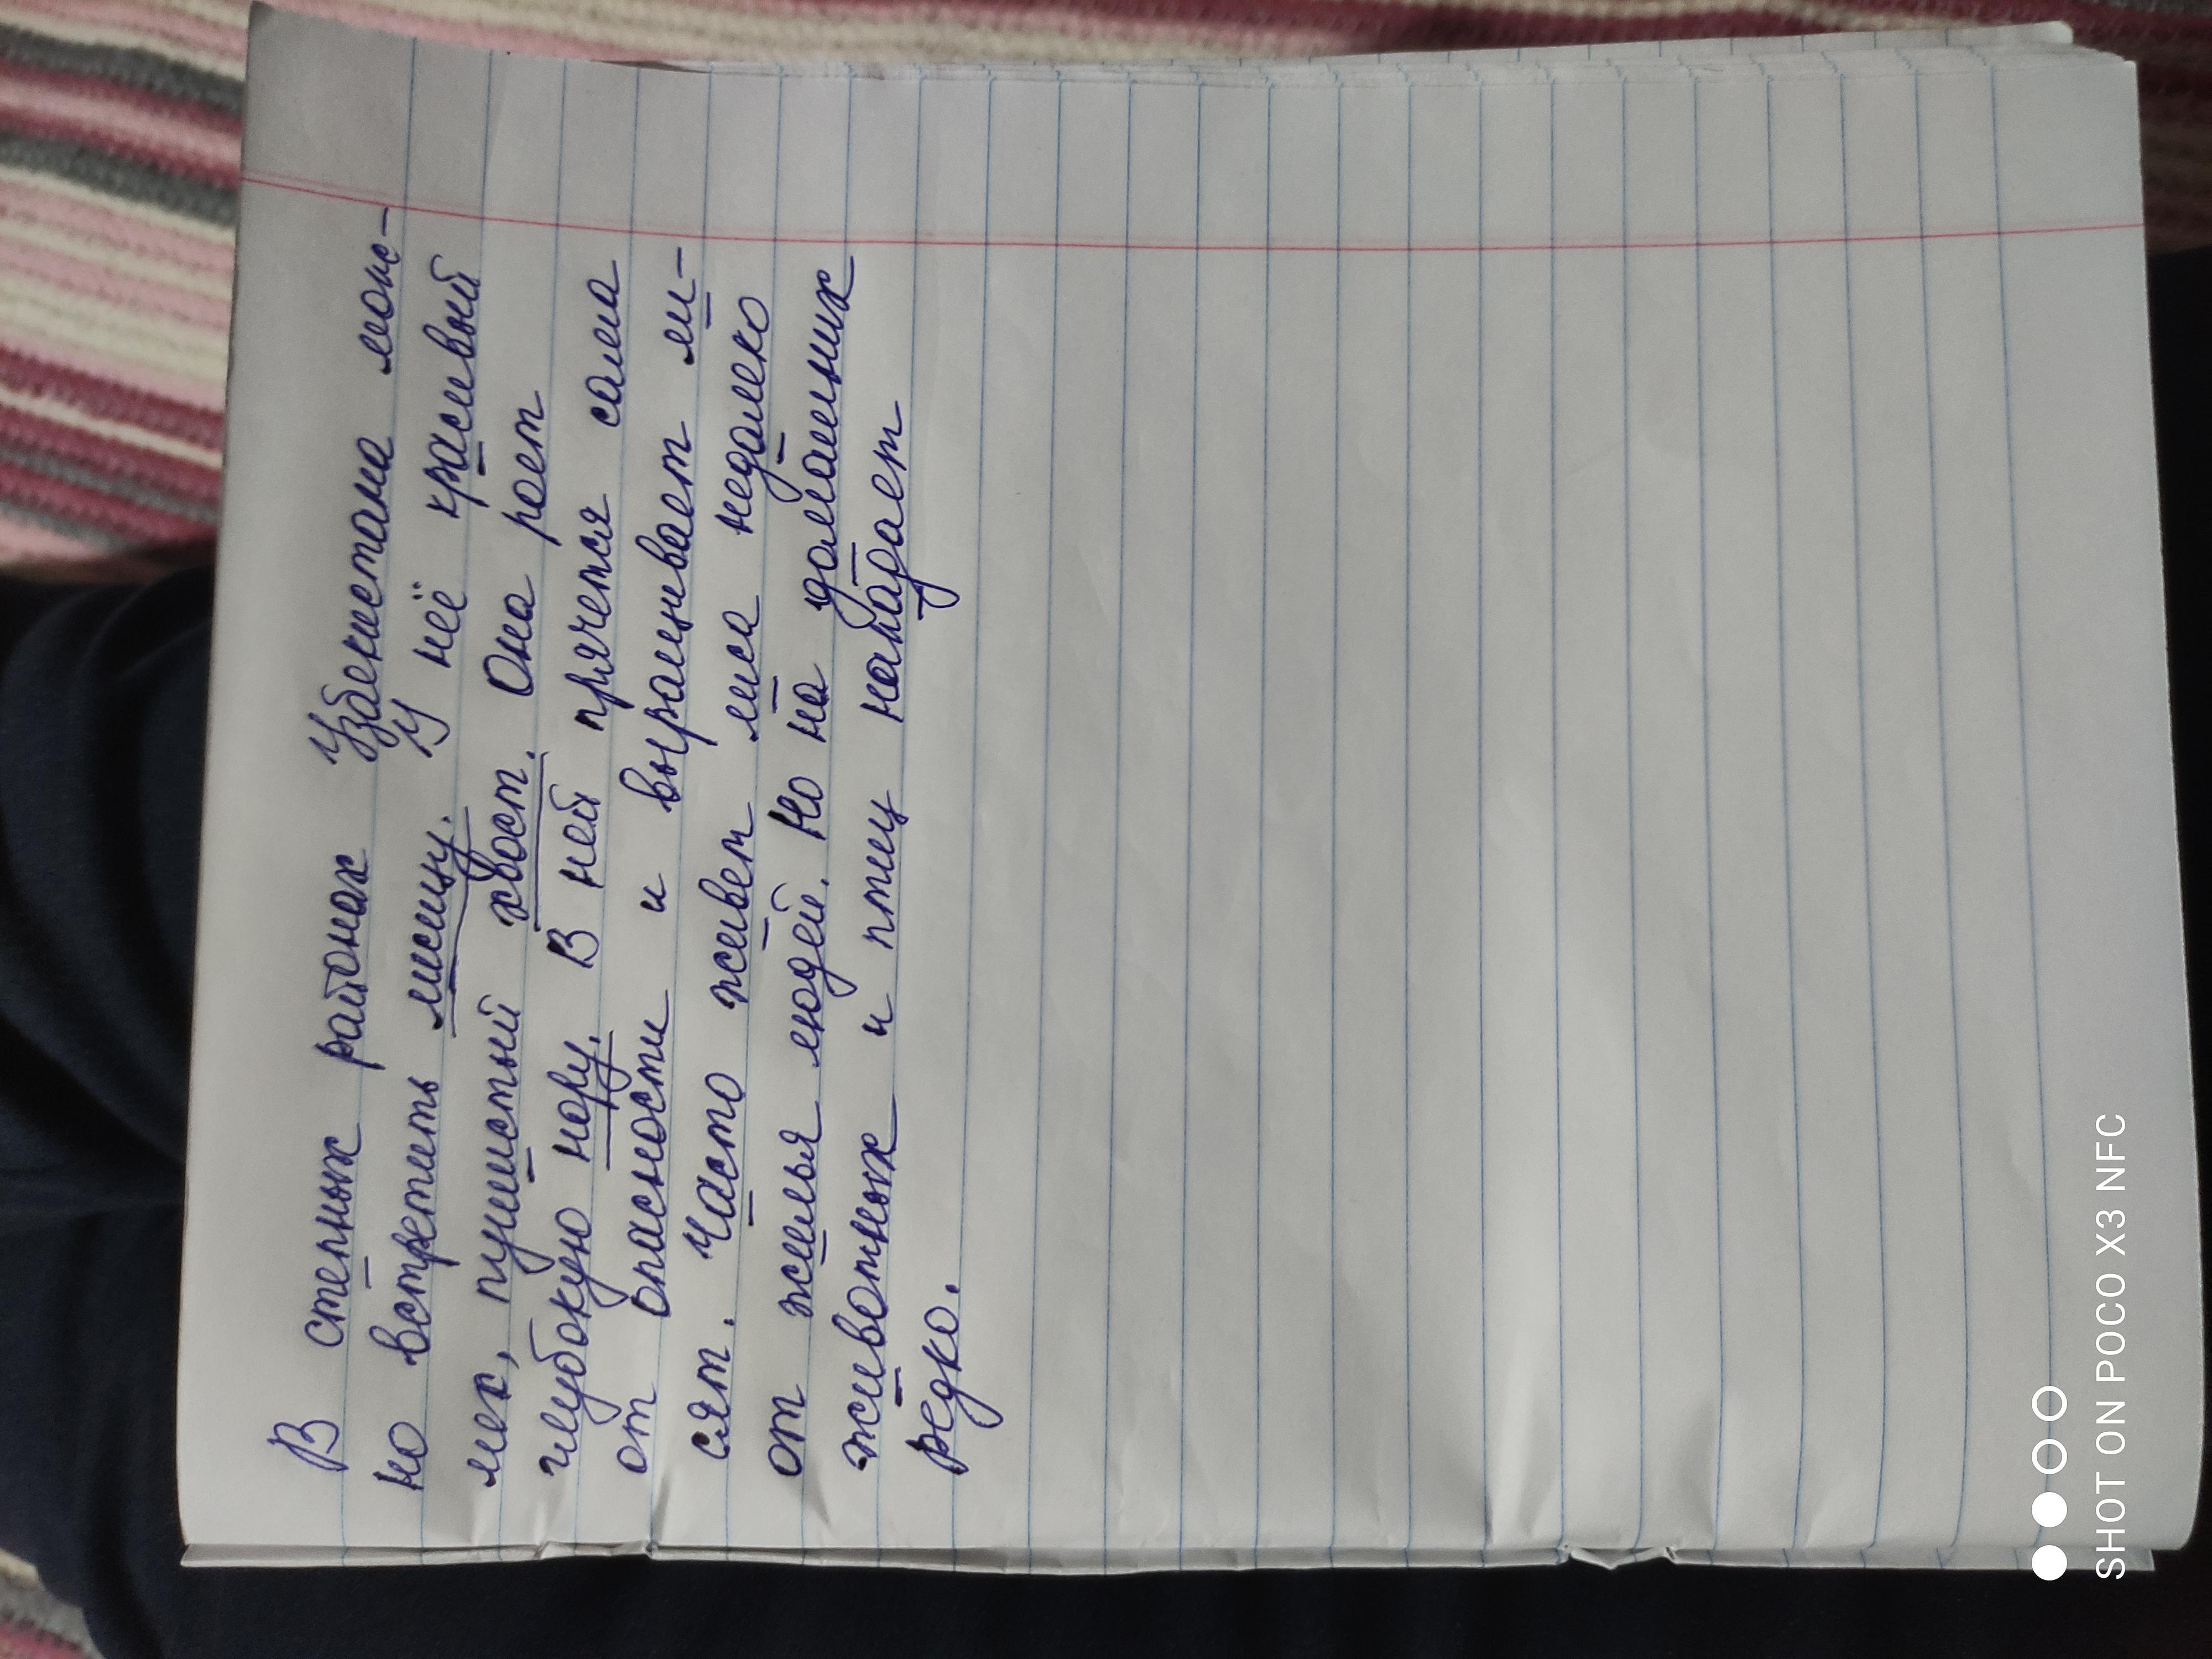 В степных районах Узбекистана мож-
но встретить лисицу. У неё красивый
мех, пушистый хвост. Она роет
глубокую нору. В ней прячется сама
от опасности и выращивает ли-
сят. Часто живет лиса недалеко
от жилья людей. Но на домашних
животных и птиц нападает
редко.
SHOT ON POCO X3 NFC